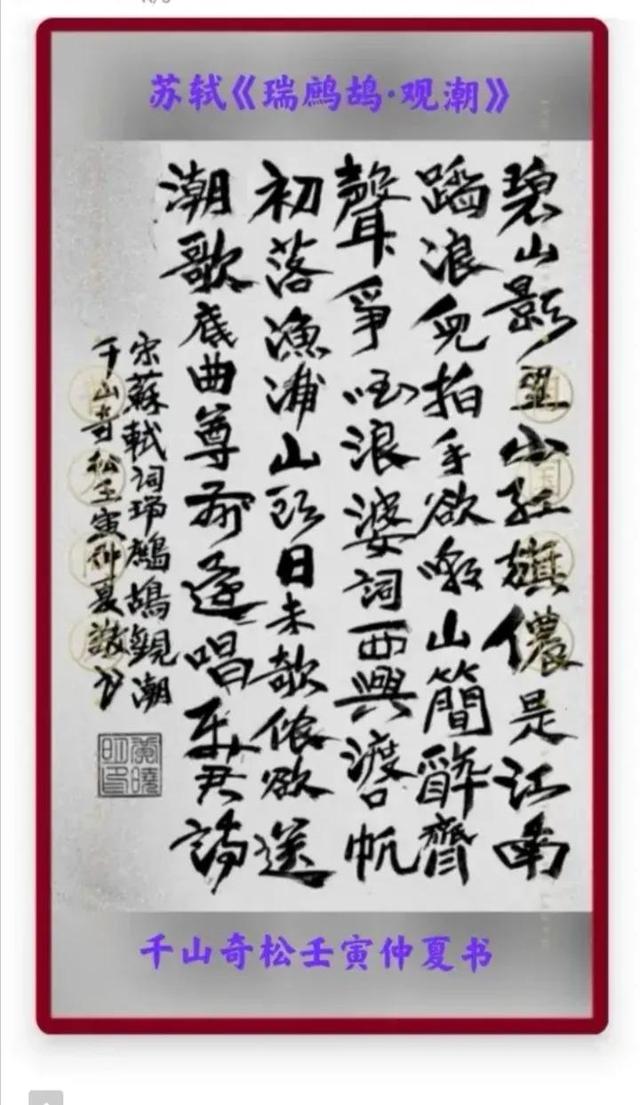 苏轼《瑞鹧鸪·观潮》
碧山影里小紅旗儂是江南
蹈浪兒拍手欲嘲山簡醉齊
聲爭唱浪婆詞西興渡口帆
初落漁浦山頭日未欹侬欲送
潮歌底曲尊前還唱使君詩
宋蘇軾词瑞鷓鴣觀潮
千山奇松壬寅仲夏
千山奇松壬寅仲夏书